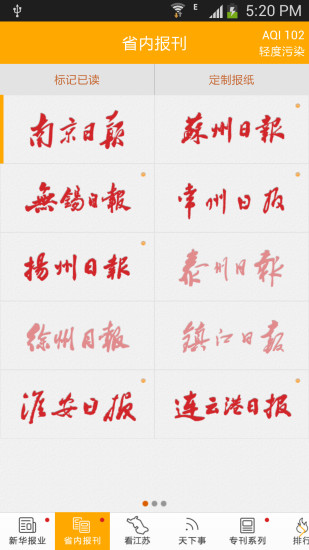 E 5:20 PM
省内报刊
AQI 102
轻度污染
标记已读 定制报纸
南京日报 蘇州日報
無錫日報 常州日报
揚州日報 泰州日報
徐州日报 鎮江日报
淮安日报 连云港日报
新华报业 省内报刊 看江苏 天下事 专刊系列 排行